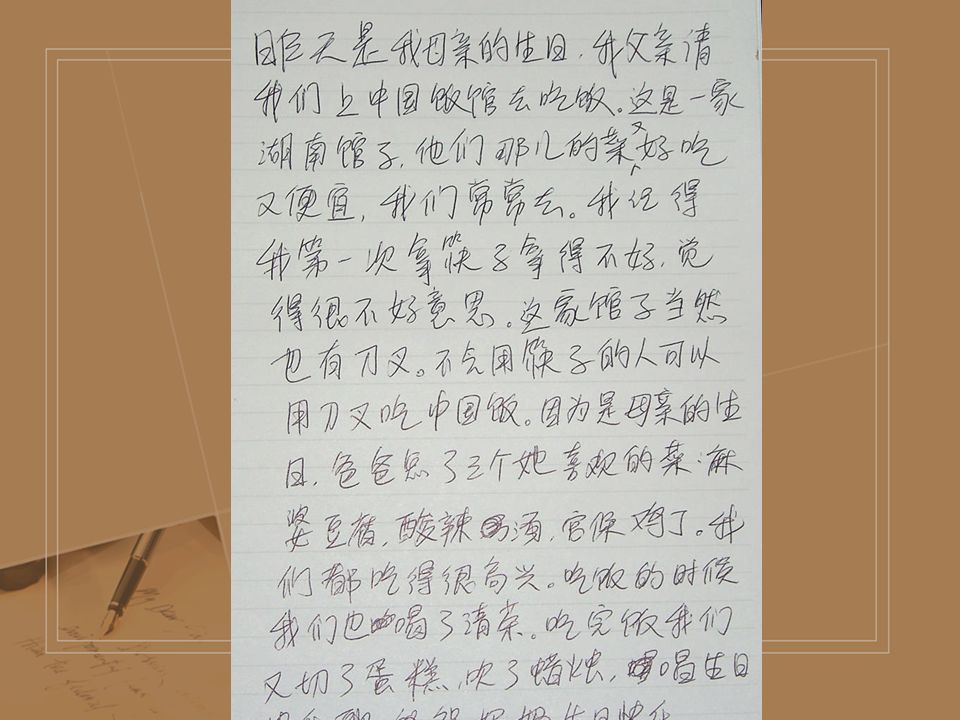 昨天是我母亲的生日，我父亲请
我们上中国饭馆去吃饭。这是一家
湖南馆子，他们那儿的菜又好吃
又便宜，我们常常去。我记得
我第一次拿筷子拿得不好，觉
得很不好意思。这家馆子当然
也有刀叉。不会用筷子的人可以
用刀叉吃中国饭。因为是母亲的生
日，爸爸点了三个她喜欢的菜：麻
婆豆腐，酸辣汤，宫保鸡丁。我
们都吃得很高兴。吃饭的时候
我们也喝了清茶。吃完饭我们
又切了蛋糕，吹了蜡烛，唱生日
妈妈生日快乐